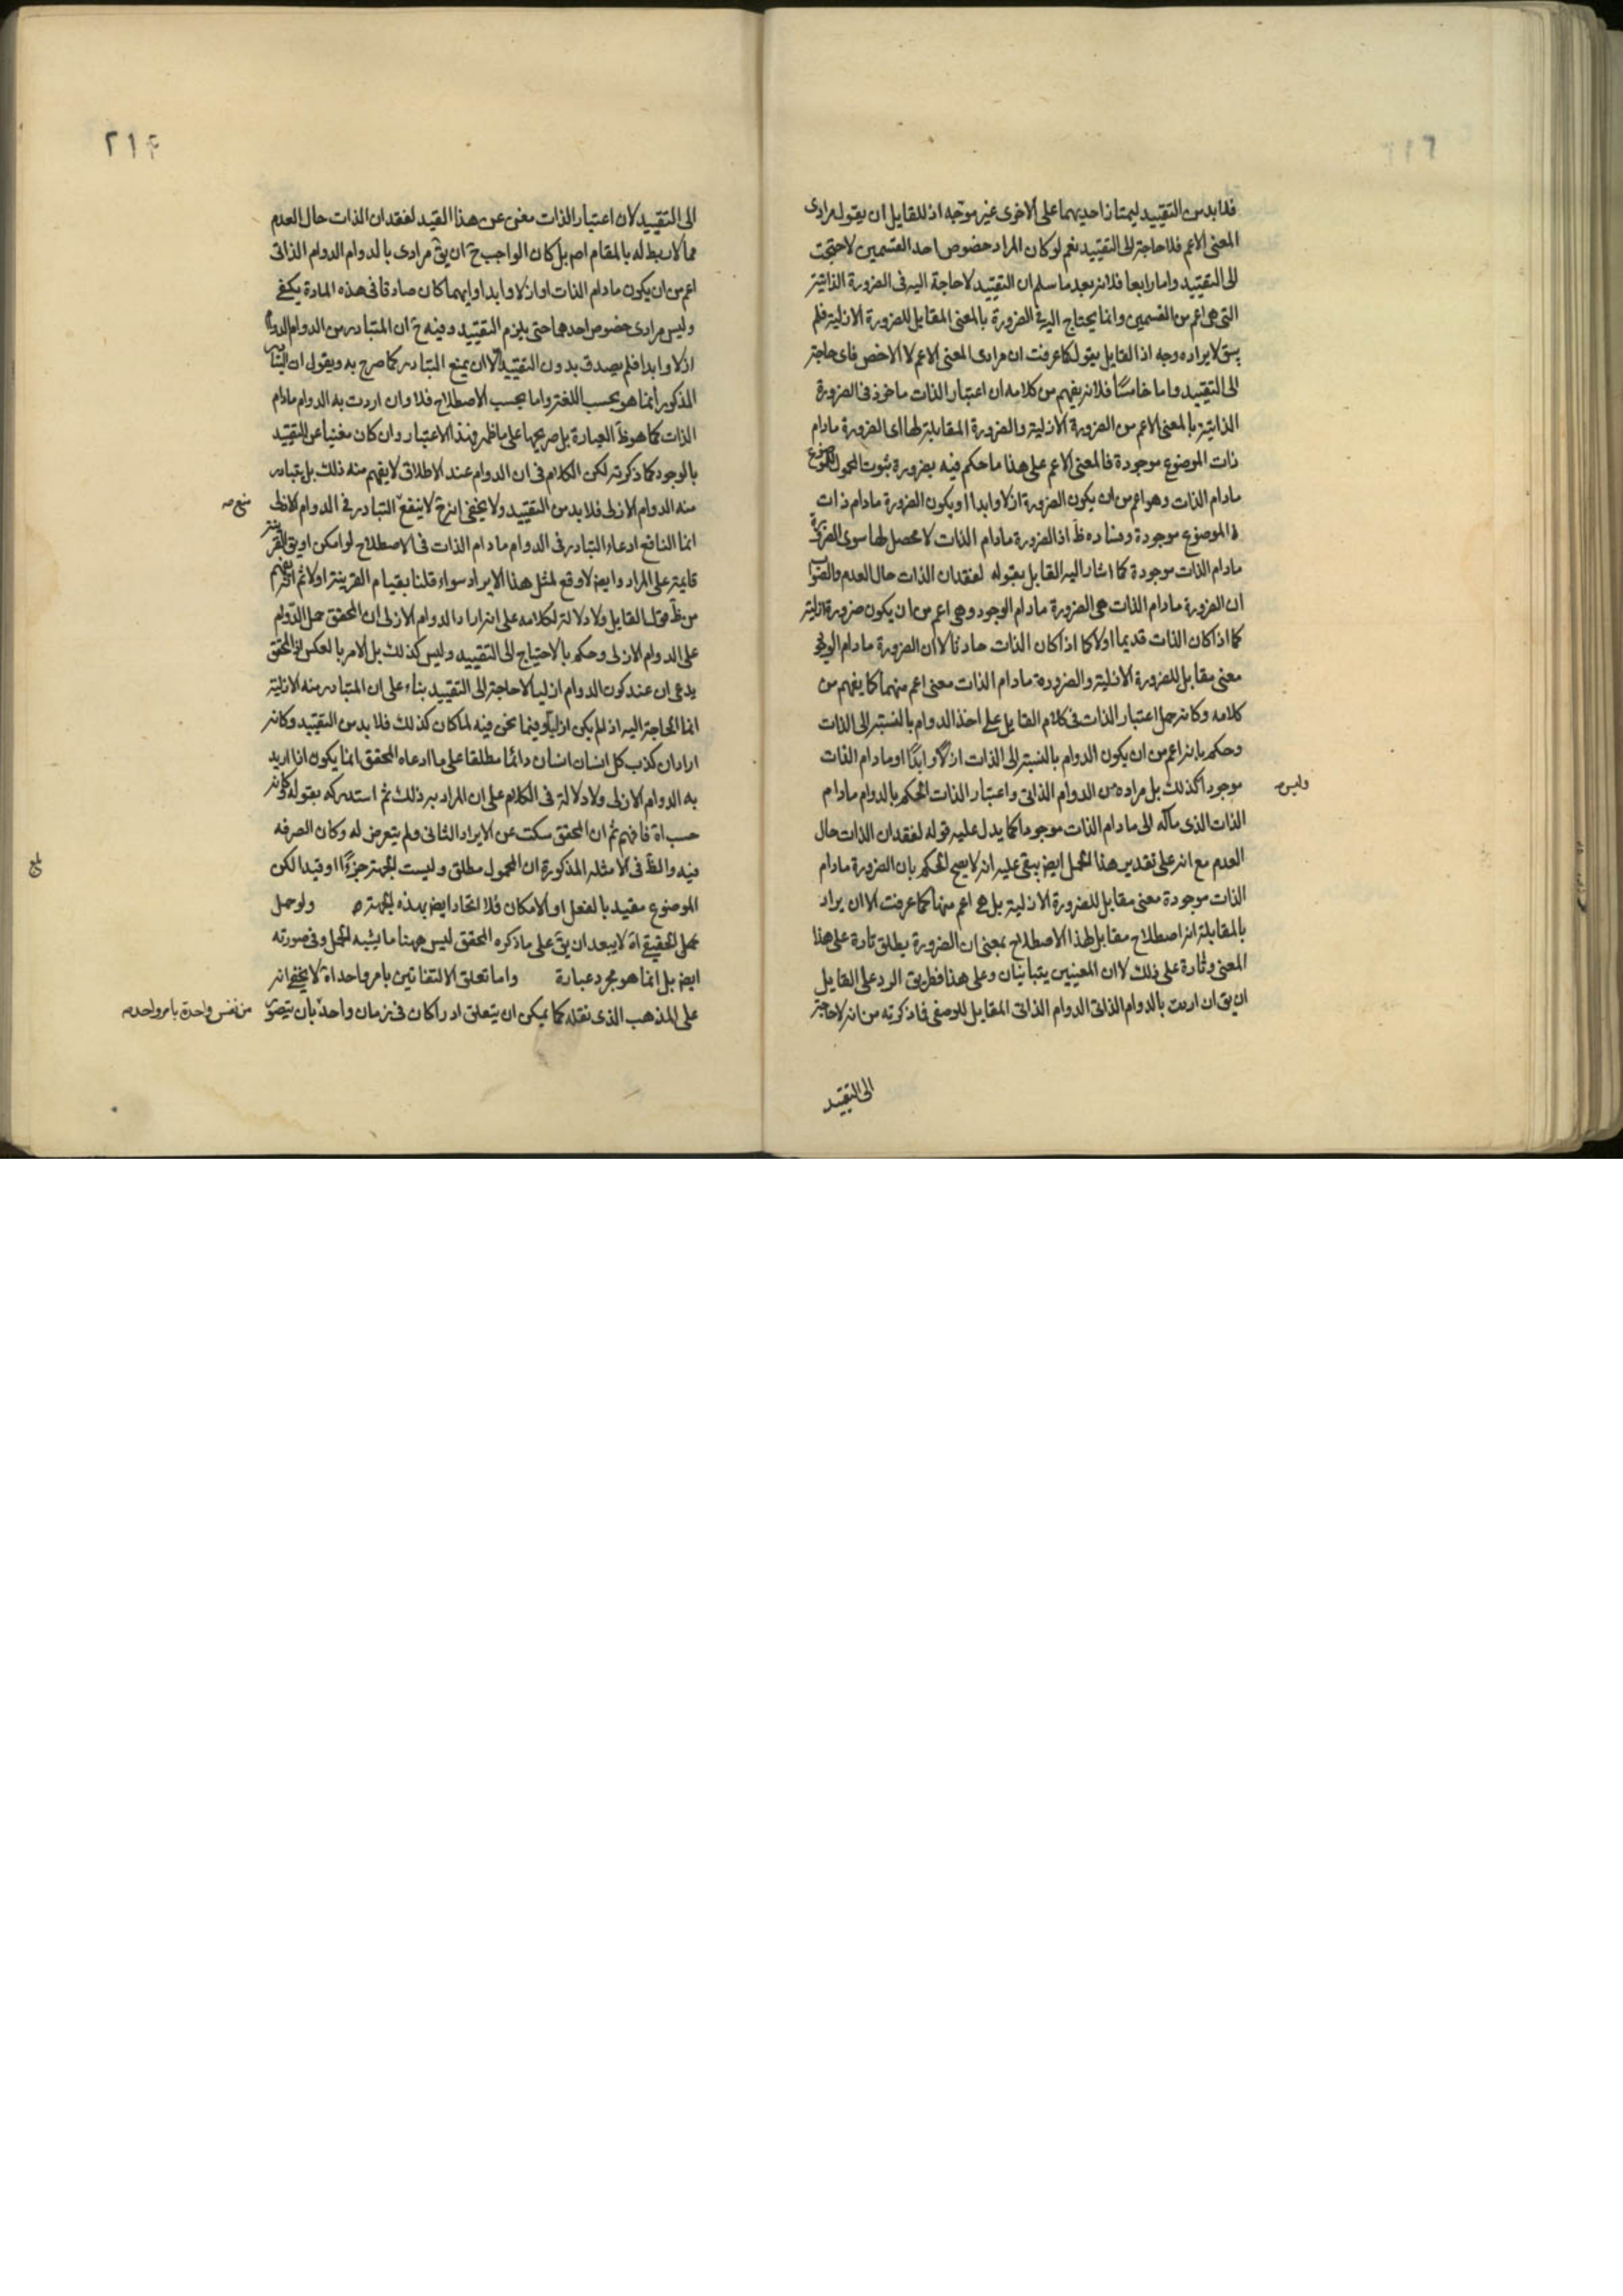 فلا بد من التقييد ليمتاز احديهما على الاخرى غير موجه اذ للقايل ان يقول مرادى
المعنى الاعم فلا حاجة الى التقييد نعم لو كان المراد خصوص احد القسمين لاحتجت
الى التقييد واما رابعا فلانه بعد ما سلم ان التقييد لا حاجة اليه فى الضرورة الذاتية
التى هى اعم من القسمين وانما يحتاج اليه فى الضرورة بالمعنى المقابل للضرورة الازلية فلم
يبق لايراده وجه اذ القايل يقول كما عرفت ان مرادى المعنى الاعم لا الاخص فاى حاجة
الى التقييد واما خامسًا فلانه يفهم من كلامه ان اعتبار الذات ماخوذ فى الضرورة
الذاتية بالمعنى الاعم من الضرورة الازلية والضرورة المقابلة لها اى الضرورة مادام
ذات الموضوع موجودة فالمعنى الاعم على هذا ما حكم فيه بضرورة ثبوت المحمول للموضوع
مادام الذات وهو اعم من ان يكون الضرورة ازلا وابدا او يكون الضرورة مادام ذات
الموضوع موجودة وفساده ظ اذ الضرورة مادام الذات لا محصل لها سوى الضرورة
مادام الذات موجودة كما اشار اليه القايل بقوله لفقدان الذات حال العدم والصواب
ان الضرورة مادام الذات هى الضرورة مادام الوجود وهى اعم من ان يكون ضرورة ازلية
كما اذا كان الذات قديما اولا كما اذا كان الذات حادثا لا ان الضرورة مادام الوجود
معنى مقابل للضرورة الازلية والضرورة مادام الذات معنى اعم منهما كما يفهم من
كلامه وكانه حمل اعتبار الذات فى كلام القايل على اخذ الدوام بالنسبة الى الذات
وحكم بانه اعم من ان يكون الدوام بالنسبة الى الذات ازلا وابدًا او مادام الذات
موجودا كذلك بل مراده من الدوام الذاتى واعتبار الذات الحكم بالدوام مادام
وليس صه
الذات الذى مآله الى مادام الذات موجودا كما يدل عليه قوله لفقدان الذات حال
العدم مع انه على تقدير هذا الحمل ايض يبقى عليه انه لا يصح الحكم بان الضرورة مادام
الذات موجودة معنى مقابل للضرورة الازلية بل هى اعم منها كما عرفت الا ان يراد
بالمقابلة انه اصطلاح مقابل لهذا الاصطلاح بمعنى ان الضرورة يطلق تارة على هذا
المعنى وتارة على ذلك لا ان المعنيين يتباينان وعلى هذا فطريق الرد على القايل
ان يق ان اردت بالدوام الذاتى الدوام الذاتى المقابل للوصفى فما ذكرته من انه لا حاجة
الى التقييد
٢١٤
الى التقييد لان اعتبار الذات مغنى عن هذا القيد لفقدان الذات حال العدم
مما لا ربط له بالمقام اصم بل كان الواجب ح ان يق مرادى بالدوام الدوام الذاتى
اعم من ان يكون مادام الذات او ازلا وابدا وايهما كان صادقا فى هذه المادة يكفى
وليس مرادى خصوص احدهما حتى يلزم التقييد وفيه ح ان المتبادر من الدوام الدوام
ازلا وابدا فلم يصدق بدون التقييد الا ان يمنع المتبادر كما صرح به ويقول ان التبادر
المذكور انما هو بحسب اللغة واما بحسب الاصطلاح فلا وان اردت به الدوام مادام
الذات كما هو ظ العبارة بل صريحها على ما ظهر فهذا الاعتبار وان كان مغنيا عن التقييد
بالوجود كما ذكرته لكن الكلام فى ان الدوام عند الاطلاق لا يفهم منه ذلك بل يتبادر
منه الدوام الازلى فلا بد من التقييد ولا يخفى انه ح لا ينفع التبادر فى الدوام الازلى
منع صه
انما النافع ادعاء التبادر فى الدوام مادام الذات فى الاصطلاح لو امكن او يق القرينة
قايمة على المراد وايض لا وقع لمثل هذا الايراد سواء قلنا بقيام القرينة اولا ثم
من ظ قول القايل ولا دلالة لكلامه على انه اراد الدوام الازلى ان المحقق حمل الدوام
على الدوام الازلى وحكم بالاحتياج الى التقييد وليس كذلك بل الامر بالعكس اذ المحقق
يدعى ان عند كون الدوام ازليا لا حاجة الى التقييد بناء على ان المتبادر منه الازلية
انما الحاجة اليه اذ لم يكن ازليا وفيما نحن فيه لما كان كذلك فلا بد من التقييد وكانه
اراد ان كذب كل انسان انسان دائما مطلقا على ما ادعاه المحقق انما يكون اذا اريد
به الدوام الازلى ولا دلالة فى الكلام على ان المراد به ذلك ثم استدركه بقوله وكانه
حسب اة فافهم ثم ان المحقق سكت عن الايراد الثانى ولم يتعرض له وكان الصرفه
فيه والظ فى الامثلة المذكورة ان المحمول مطلق وليست الجهة جزءًا او قيدا لكن
بلغ
الموضوع مقيد بالفعل او الامكان فلا اتحاد ايض بهذه الجهة ولو حمل
حمل الحقيقى اة لا يبعد ان يق على ما ذكره المحقق ليس ههنا ما يشبه الحمل وفى صورته
ايض بل انما هو مجرد عبارة واما تعلق الالتفاتين بامر واحد اة لا يخفى انه
على المذهب الذى نقله كما يمكن ان يتعلق ادراكان فى زمان واحد بان يتصور
من نفس واحدة بامر واحد صه